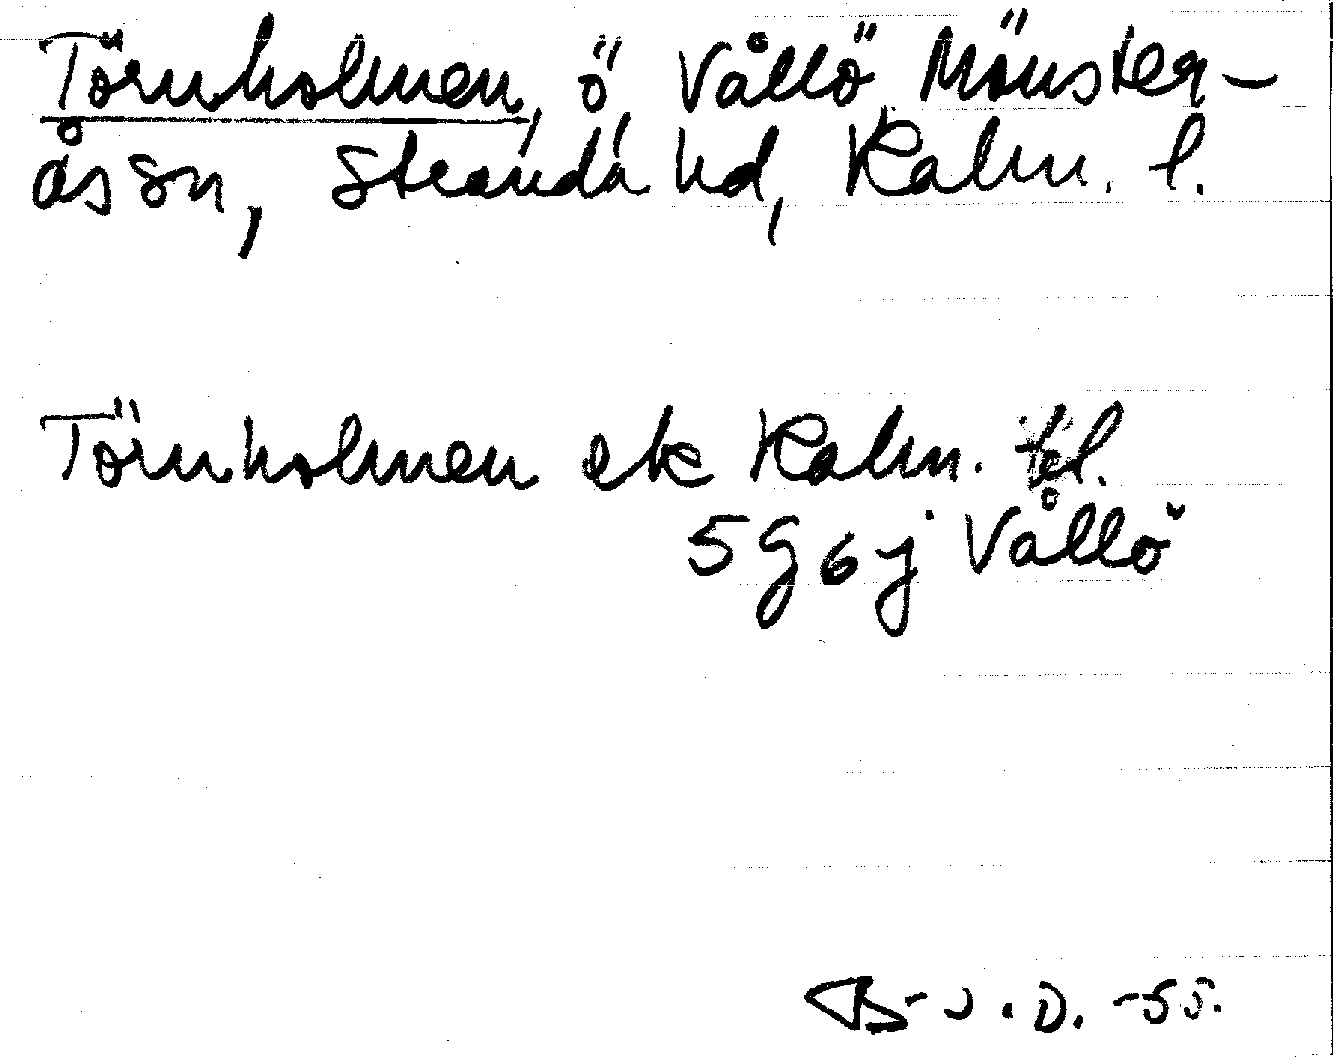 Törnholmen, ö, Vållö, Mönster-
ås sn, Stranda hd, Kalm. l.
Törnholmen ek Kalm.
5 G 6 j Vållö
B-J.D. -55.